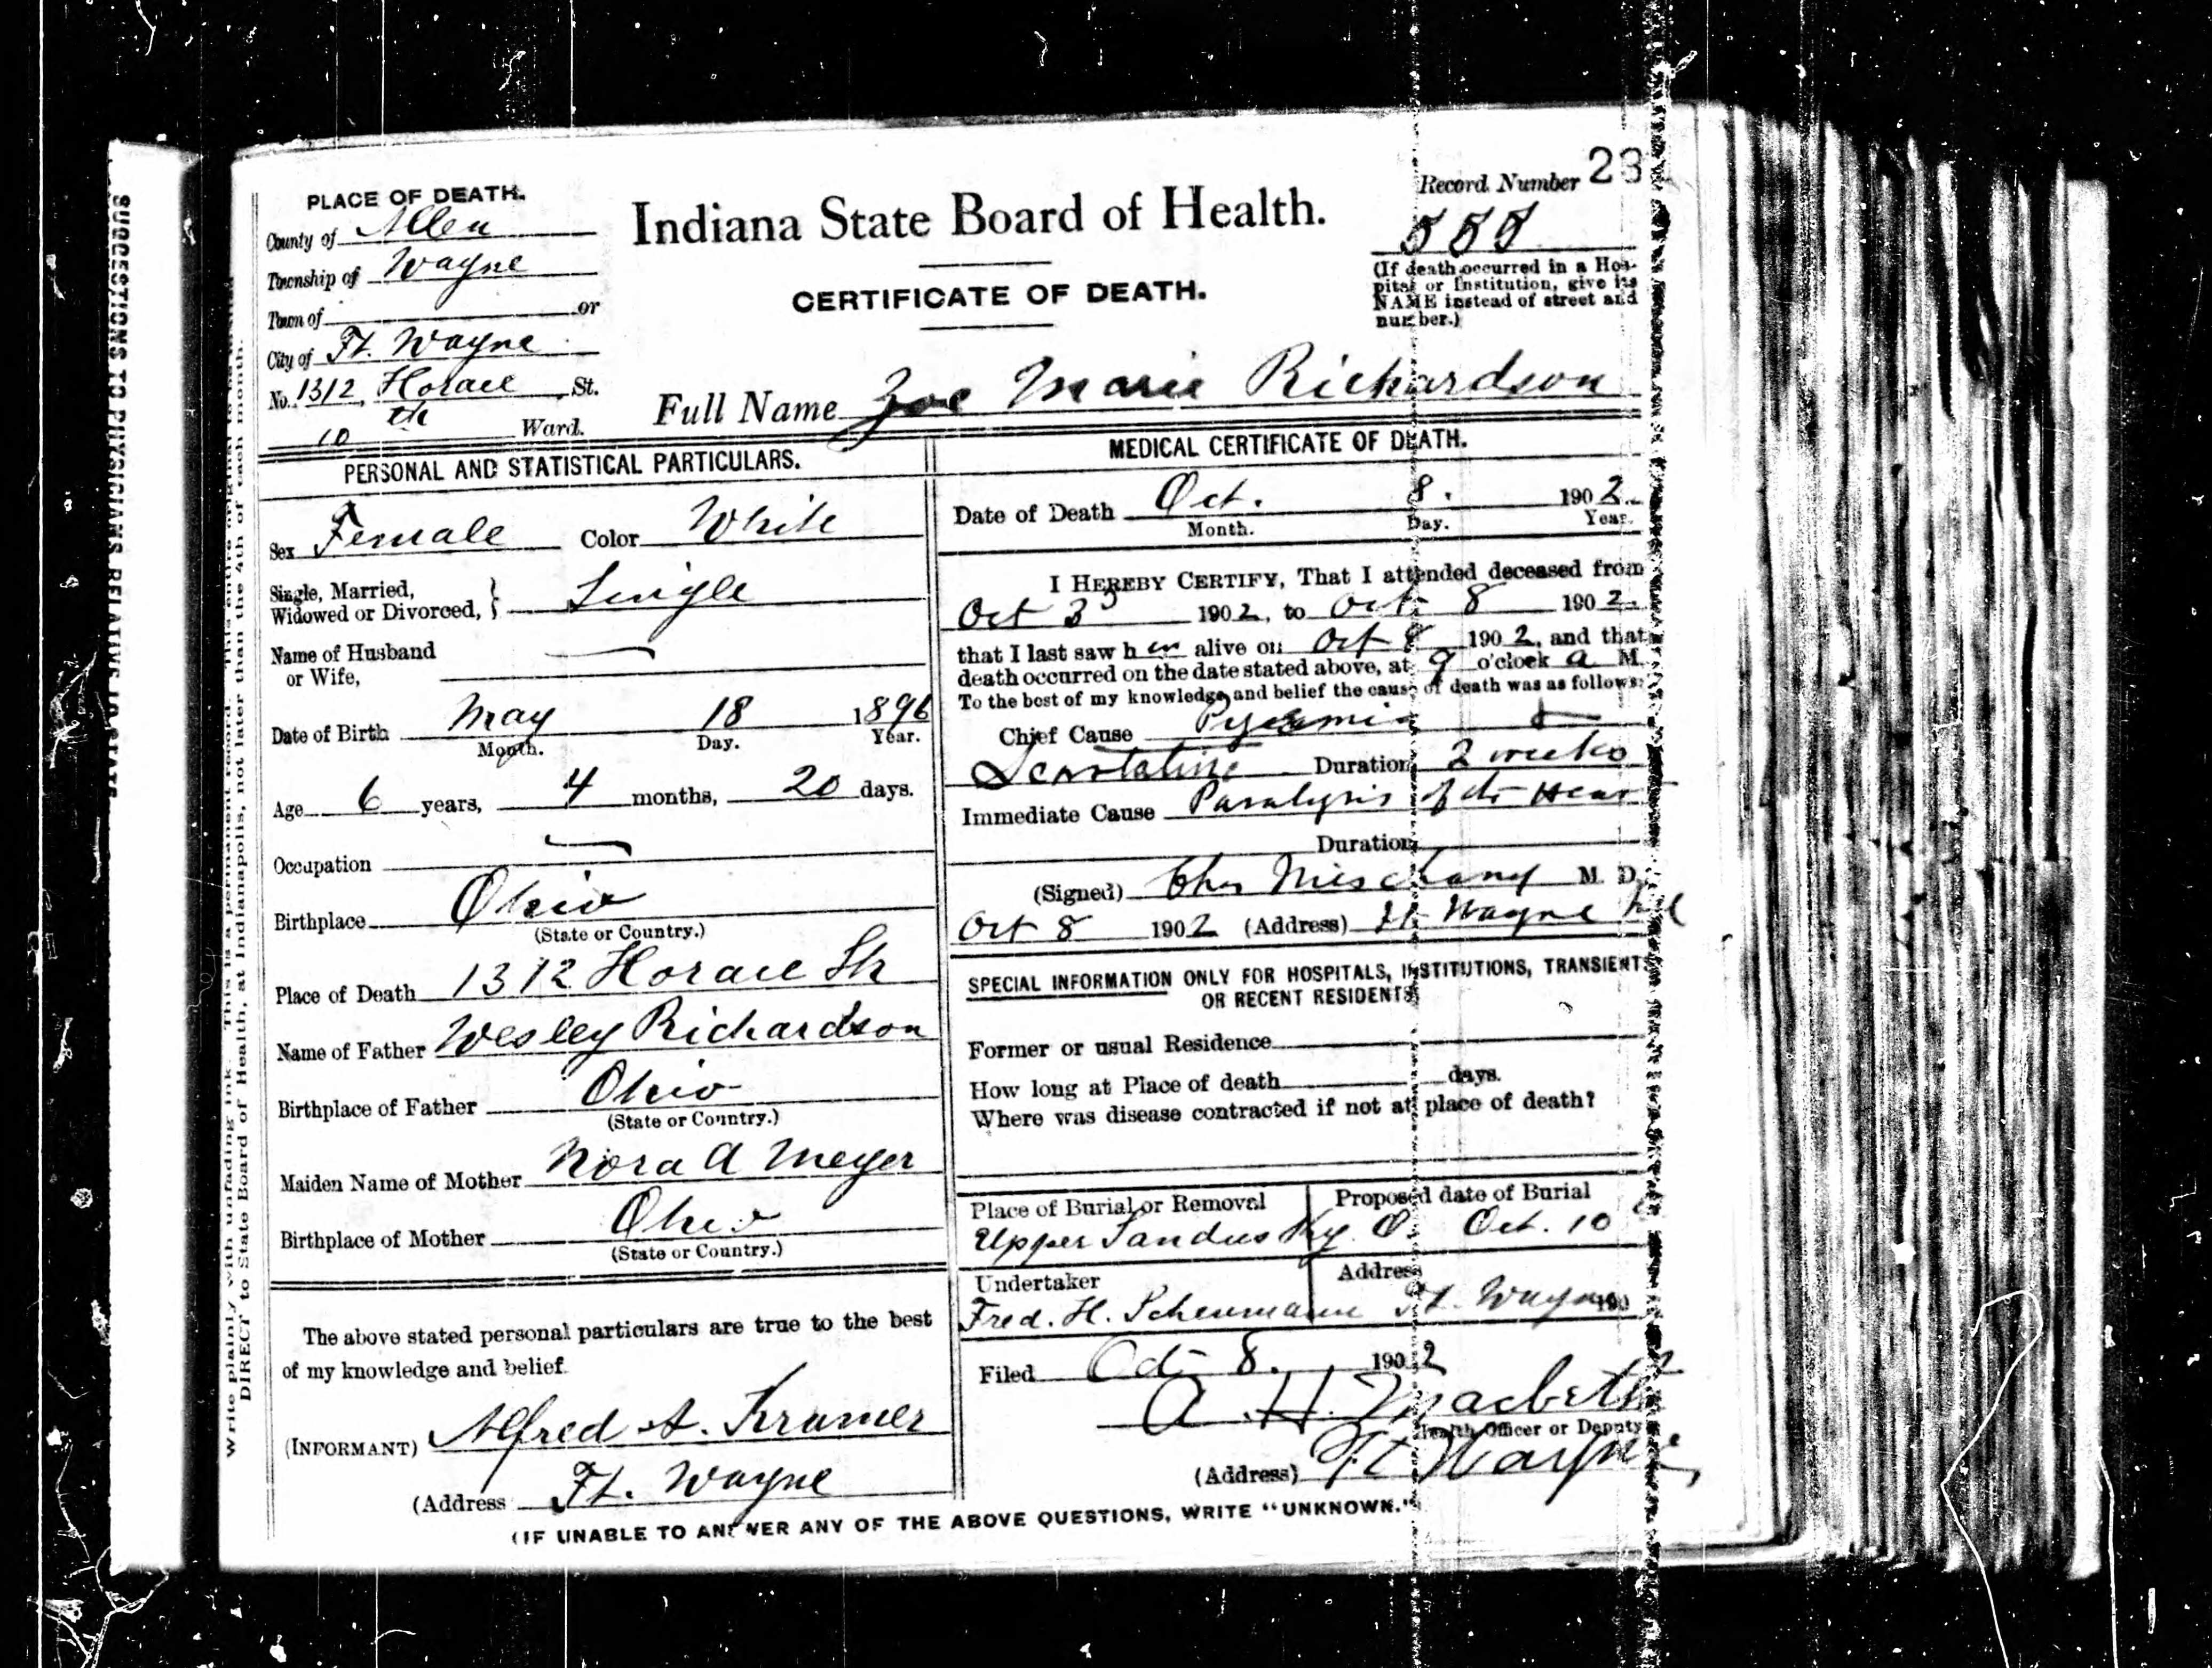 SUGGESTIONS TO PHYSICIANS RELATIVE TO STATE
Write plainly with unfading ink. This is a permanent record. This entire
DIRECT to State Board of Health, at Indianapolis, not later than the 4th of each month.
PLACE OF DEATH.
County of Allen
Township of Wayne
Town of or
City of Ft. Wayne
No. 1312, Horace St.
10 th Ward.
Indiana State Board of Health.
CERTIFICATE OF DEATH.
Record Number 23
555
(If death occurred in a Hos-
pital or Institution, give its
NAME instead of street and
number.)
Full Name Zoe Marie Richardson
PERSONAL AND STATISTICAL PARTICULARS.
Sex Female Color White
Single, Married,
Widowed or Divorced, } Single
Name of Husband
or Wife,
Date of Birth May 18 1896
Month. Day. Year.
Age 6 years, 4 months, 20 days.
Occupation
Birthplace Ohio
(State or Country.)
Place of Death 1312 Horace Str
Name of Father Wesley Richardson
Birthplace of Father Ohio
(State or Country.)
Maiden Name of Mother Nora A Meyer
Birthplace of Mother Ohio
(State or Country.)
The above stated personal particulars are true to the best
of my knowledge and belief.
(INFORMANT) Alfred A. Kramer
(Address Ft. Wayne
MEDICAL CERTIFICATE OF DEATH.
Date of Death Oct. 8. 1902
Month. Day. Year.
I HEREBY CERTIFY, That I attended deceased from
Oct 3 1902, to Oct 8 1902.
that I last saw her alive on Oct 8 1902, and that
death occurred on the date stated above, at 9 o'clock a M.
To the best of my knowledge and belief the cause of death was as follows:
Chief Cause Pyaemia &
Scarlatina Duration 2 weeks
Immediate Cause Paralysis of the Heart
Duration
(Signed) M. D.
Oct 8 1902 (Address) Ft. Wayne Ind
SPECIAL INFORMATION ONLY FOR HOSPITALS, INSTITUTIONS, TRANSIENTS
OR RECENT RESIDENTS
Former or usual Residence
How long at Place of death days.
Where was disease contracted if not at place of death?
Place of Burial or Removal Proposed date of Burial
Upper Sandusky O. Oct. 10
Undertaker Address
Fred. H. Scheumann Ft. Wayne 190
Filed Oct 8. 1902
A. H. Macbeth
Health Officer or Deputy
(Address) Ft Wayne
(IF UNABLE TO ANSWER ANY OF THE ABOVE QUESTIONS, WRITE "UNKNOWN."